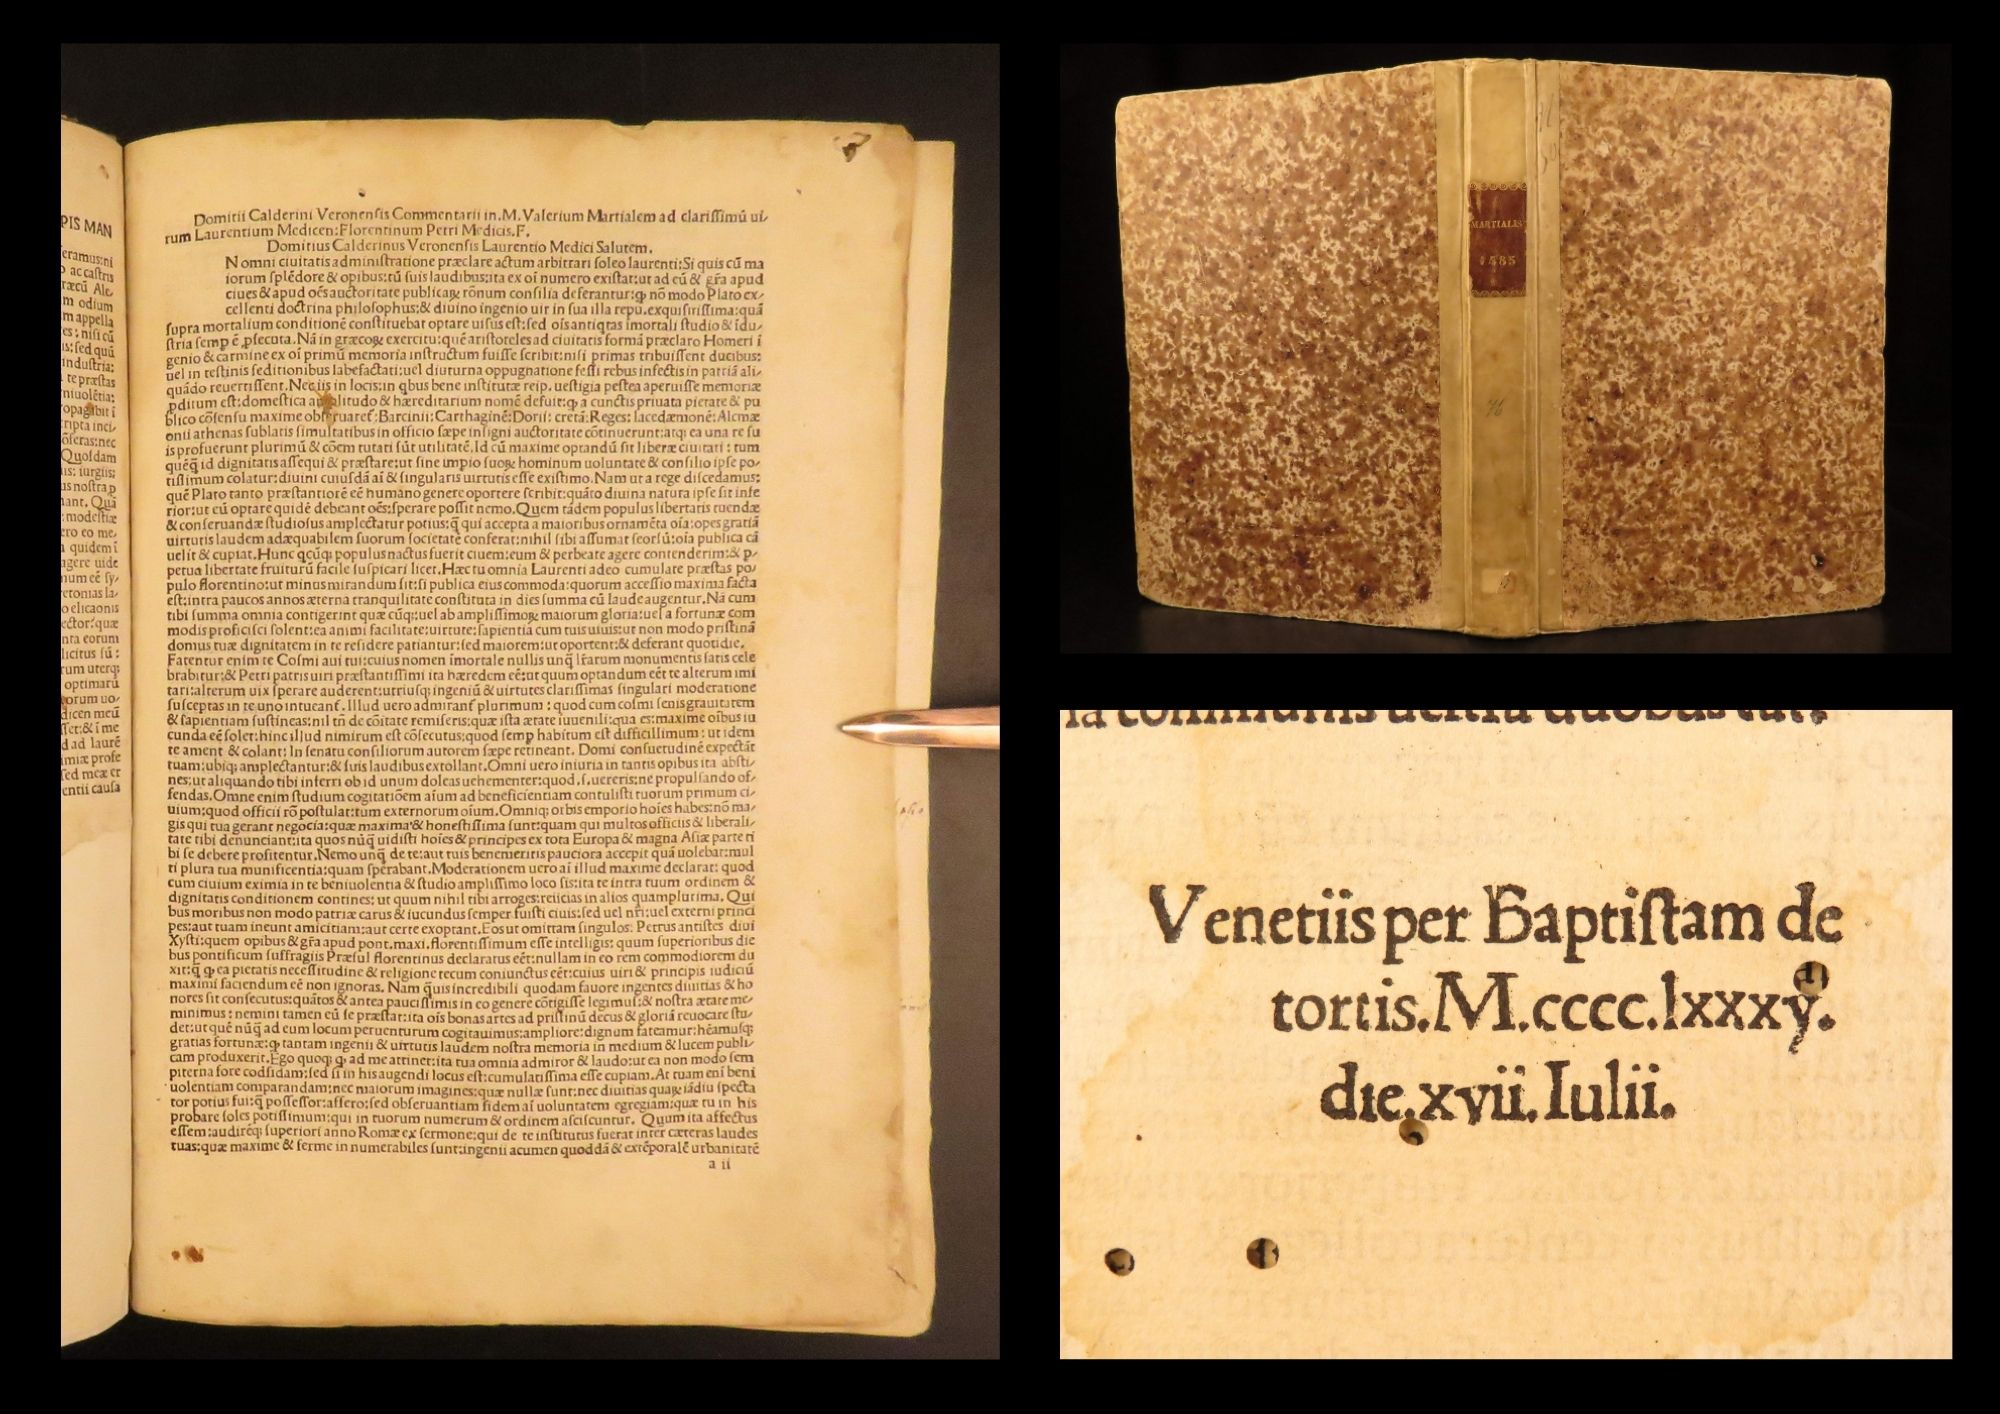 PIS MAN
Domitii Calderini Veronensis Commentarii in.M.Valerium Martialem ad clarissimũ ui-
rum Laurentium Medicen:Florentinum Petri Medicis.F.
Domitius Calderinus Veronensis Laurentio Medici Salutem.
N omni ciuitatis administratione præclare actum arbitrari soleo laurenti:Si quis cũ ma
iorum splẽdore & opibus:tũ suis laudibus:ita ex oĩ numero existat:ut ad eũ & gr̃a apud
ciues & apud oẽs auctoritate publicaꝝ rõnum consilia deferantur:ꝙ nõ modo Plato ex-
cellenti doctrina philosophus:& diuino ingenio uir in sua illa repu.exquisitissima:quã
supra mortalium conditionẽ constituebat optare uisus est:sed oĩs antiqtas ĩmortali studio & ĩdu-
stria semp ẽ ꝓsecuta.Nã in græcoꝝ exercitu:quẽ aristoteles ad ciuitatis formã præclaro Homeri ĩ
genio & carmine ex oĩ primũ memoria instructum fuisse scribit:nisi primas tribuissent ducibus:
uel in testinis seditionibus labefactati:uel diuturna oppugnatione fessi rebus infectis in patriã ali-
quãdo reuertissent.Nec iis in locis:in qbus bene institutæ reip. uestigia postea aperuisse memoriæ
ꝓditum est:domestica amplitudo & hæreditarium nomẽ defuit:ꝙ a cunctis priuata pietate & pu
blico cõsensu maxime obseruaret̃:Barcinii:Carthaginẽ:Dorii: cretã:Reges:lacedæmonẽ:Alcmæ
onii athenas sublatis simultatibus in officio sæpe insigni auctoritate cõtinuerunt:atqꝫ ea una re su
is profuerunt plurimũ & cõem tutati sũt utilitatẽ.Id cũ maxime optandũ sit liberæ ciuitati : tum
quẽq̃ id dignitatis assequi & præstare:ut sine impio suoꝝ hominum uoluntate & consilio ipse po-
tissimum colatur:diuini cuiusdã aĩ & singularis uirtutis esse existimo.Nam ut a rege discedamus:
quẽ Plato tanto præstantiorẽ eẽ humano genere oportere scribit:quãto diuina natura ipse sit infe
rior:ut cũ optare quidẽ debeant oẽs:sperare possit nemo.Quem tãdem populus libertatis tuendæ
& conseruandæ studiosus amplectatur potius:q̃ qui accepta a maioribus ornamẽta oĩa:opes gratiã
uirtutis laudem adæquabilem suorum societatẽ conferat:nihil sibi assumat seorsũ:oĩa publica cã
uelit & cupiat.Hunc qcũqꝫ populus nactus fuerit ciuem:eum & perbeate agere contenderim:& p-
petua libertate fruiturũ facile suspicari licet.Hæc tu omnia Laurenti adeo cumulate præstas po-
pulo florentino:ut minus mirandum sit:si publica eius commoda:quorum accessio maxima facta
est:intra paucos annos æterna tranquilitate constituta in dies summa cũ laude augentur.Nã cum
tibi summa omnia contigerint quæ cũqꝫ:uel ab amplissimoꝝ maiorum gloria:uel a fortunæ com
modis proficisci solent:ea animi facilitate:uirtute:sapientia cum tuis uiuis:ut non modo pristinã
domus tuæ dignitatem in te residere patiantur:sed maiorem:ut oportent:& deferant quotidie.
Fatentur enim te Cosmi aui tui:cuius nomen ĩmortale nullis unq̃ lr̃arum monumentis satis cele
brabitur:& Petri patris uiri præstantissimi ita hæredem eẽ:ut quum optandum eẽt te alterum imi
tari:alterum uix sperare auderent:utriusqꝫ ingeniũ & uirtutes clarissimas singulari moderatione
susceptas in te uno intueant̃.Illud uero admirant̃ plurimum : quod cum cosmi senis grauitatem
& sapientiam sustineas:nil tñ de cõitate remiseris:quæ ista ætate iuuenili:qua es:maxime oĩbus iu
cunda eẽ solet:hinc illud nimirum est cõsecutus:quod semp habitum est difficillimum : ut idem
te ament & colant: In senatu consiliorum autorem sæpe retineant. Domi consuetudinẽ expectãt
tuam:ubiqꝫ amplectantur:& suis laudibus extollant.Omni uero iniuria in tantis opibus ita absti-
nes:ut aliquando tibi inferri ob id unum doleas uehementer:quod.s.uereris:ne propulsando of-
fendas.Omne enim studium cogitatiõem aĩum ad beneficientiam contulisti tuorum primum ci-
uium:quod officii rõ postulat:tum externorum oĩum.Omniqꝫ orbis emporio hoĩes habes:nõ ma-
gis qui tua gerant negocia:quæ maxima & honestissima sunt:quam qui multos officiis & liberali-
tate tibi denunciant:ita quos nũq̃ uidisti hoĩes & principes ex tota Europa & magna Asiæ parte ti
bi se debere profitentur.Nemo unq̃ de te:aut tuis benemeritis pauciora accepit quã uolebat:mul
ti plura tua munificentia:quam sperabant.Moderationem uero aĩ illud maxime declarat: quod
cum ciuium eximia in te beniuolentia & studio amplissimo loco sis:ita te intra tuum ordinem &
dignitatis conditionem contines: ut quum nihil tibi arroges:reiicias in alios quamplurima. Qui
bus moribus non modo patriæ carus & iucundus semper fuisti ciuis:sed uel nr̃i:uel externi princi
pes:aut tuam ineunt amicitiam:aut certe exoptant.Eos ut omittam singulos: Petrus antistes diui
Xysti:quem opibus & gr̃a apud pont.maxi.florentissimum esse intelligis: quum superioribus die
bus pontificum suffragiis Præsul florentinus declaratus eẽt:nullam in eo rem commodiorem du
xit:q̃ ꝙ ea pietatis necessitudine & religione tecum coniunctus eẽt:cuius uiri & principis iudiciũ
maximi faciendum eẽ non ignoras. Nam q̃uis incredibili quodam fauore ingentes diuitias & ho
nores sit consecutus:quãtos & antea paucissimis in eo genere cõtigisse legimus:& nostra ætate me-
minimus : nemini tamen eũ se præstat:ita oĩs bonas artes ad pristinũ decus & gloriã reuocare stu-
det:ut quẽ nũq̃ ad eum locum peruenturum cogitauimus:ampliore:dignum fateamur:hẽamusqꝫ
gratias fortunæ:ꝙ tantam ingenii & uirtutis laudem nostra memoria in medium & lucem publi-
cam produxerit.Ego quoqꝫ ꝙ ad me attinet:ita tua omnia admiror & laudo:ut ea non modo sem
piterna fore codsidam:sed si in his augendi locus est:cumulatissima esse cupiam.At tuam enĩ beni
uolentiam comparandam:nec maiorum imagines:quæ nullæ sunt:nec diuitias quaꝝ iãdiu specta
tor potius fui:q̃ possessor:affero:sed obseruantiam fidem aĩ uoluntatem egregiam:quæ tu in his
probare soles potissimum:qui in tuorum numerum & ordinem asciscuntur. Quum ita affectus
essem:audireqꝫ superiori anno Romæ ex sermone:qui de te institutus fuerat inter cæteras laudes
tuas:quæ maxime & ferme in numerabiles sunt:ingenii acumen quoddã & extẽporalẽ urbanitatẽ
a ii
MARTIALIS
1485
76
Venetiis per Baptistam de
tortis.M.cccc.lxxxv.
die.xvii.Iulii.